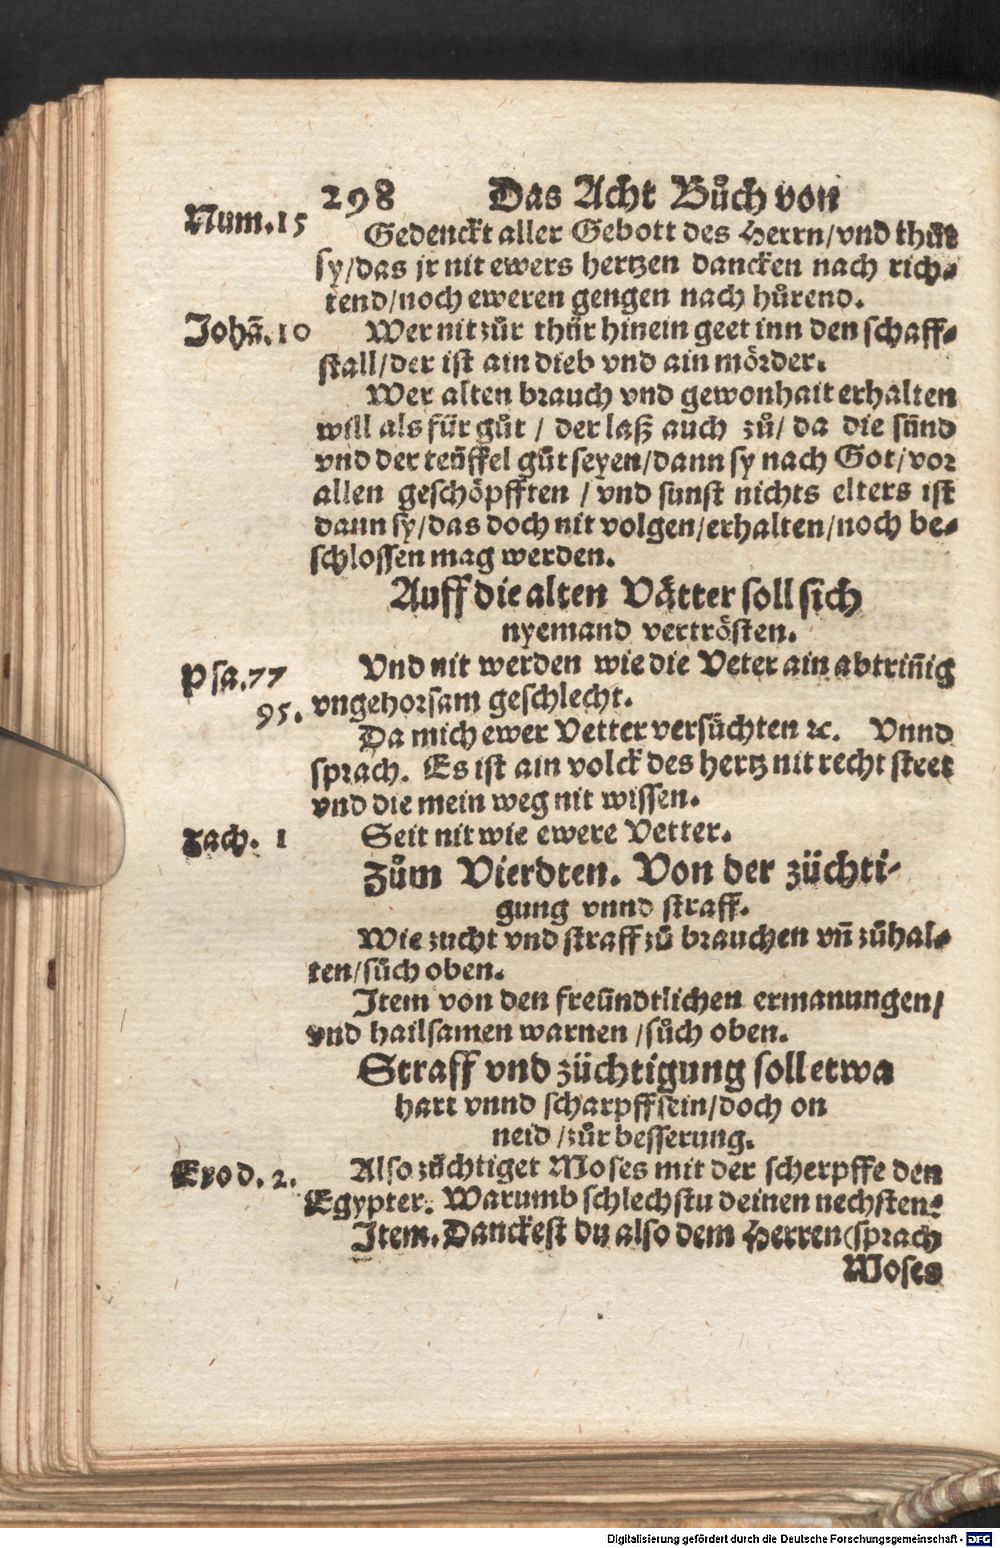 298 Das Acht Bůch von
Num.15
Gedenckt aller Gebott des Herrn/vnd thůt
sy/das jr nit ewers hertzen dancken nach rich⸗
tend/noch eweren gengen nach hůrend.
Johañ.10
Wer nit zůr thür hinein geet inn den schaff⸗
stall/der ist ain dieb vnd ain mörder.
Wer alten brauch vnd gewonhait erhalten
will als für gůt / der laß auch zů/ da die sünd
vnd der teüffel gůt seyen/dann sy nach Got/vor
allen geschöpfften / vnd sunst nichts elters ist
dann sy/das doch nit volgen/erhalten/noch be⸗
schlossen mag werden.
Auff die alten Vätter soll sich
nyemand vertrösten.
Psa.77
95.
Vnd nit werden wie die Veter ain abtriñig
vngehorsam geschlecht.
Da mich ewer Vetter versůchten ꝛc. Vnnd
sprach. Es ist ain volck des hertz nit recht steet
vnd die mein weg nit wissen.
Zach. 1
Seit nit wie ewere Vetter.
Zům Vierdten. Von der züchti⸗
gung vnnd straff.
Wie zucht vnd straff zů brauchen vñ zůhal⸗
ten/sůch oben.
Item von den freündtlichen ermanungen/
vnd hailsamen warnen /sůch oben.
Straff vnd züchtigung soll etwa
hart vnnd scharpff sein/doch on
neid /zůr besserung.
Exod. 2.
Also züchtiget Moses mit der scherpffe den
Egypter. Warumb schlechstu deinen nechsten?
Item. Danckest du also dem Herren (sprach
Moses
Digitalisierung gefördert durch die Deutsche Forschungsgemeinschaft - DFG